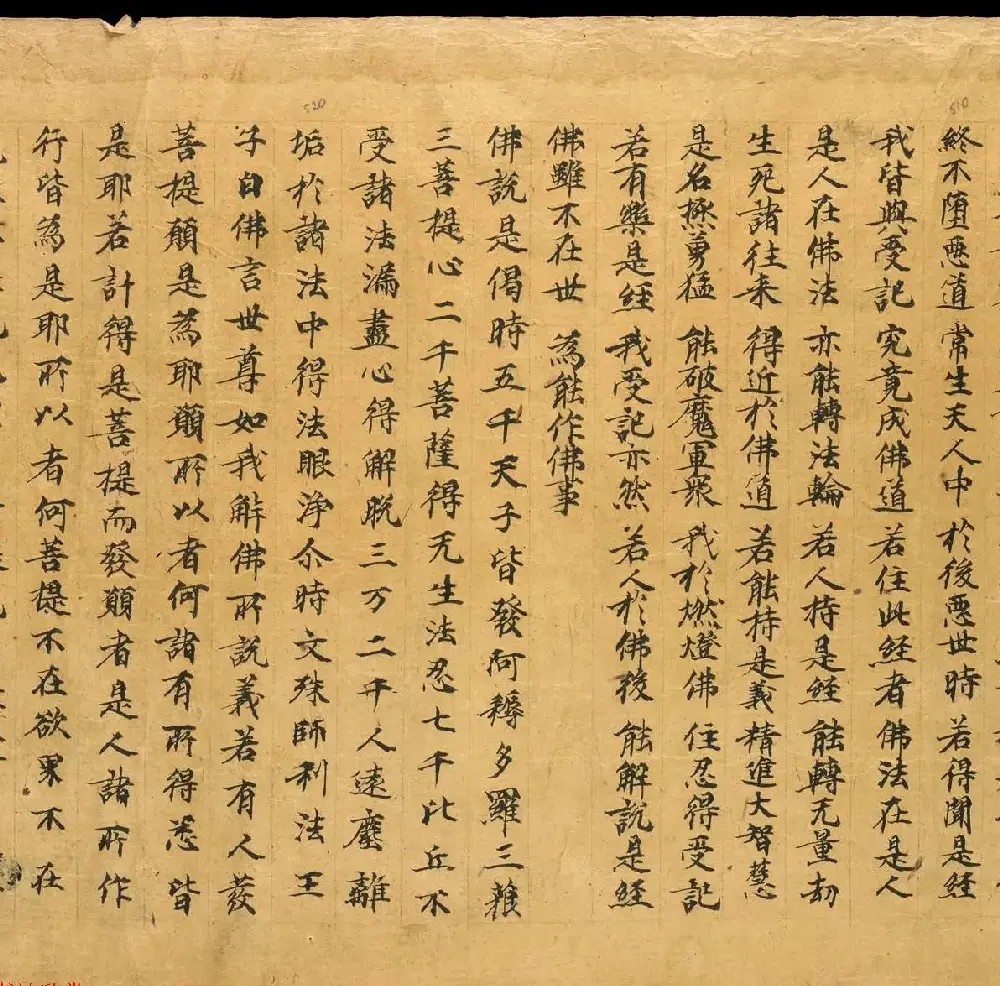 終不墮惡道 常生天人中 於後惡世時 若得聞是経
我皆與受記 究竟成佛道 若住此経者 佛法在是人
是人在佛法 亦能轉法輪 若人持是経 能轉无量劫
生死諸往来 得近於佛道 若能持是義 精進大智慧
是名極勇猛 能破魔軍衆 我於燃燈佛 住忍得受記
若有樂是経 我受記亦然 若人於佛後 能解説是経
佛雖不在世 為能作佛事
佛説是偈時五千天子皆發阿耨多羅三藐
三菩提心二千菩薩得无生法忍七千比丘不
受諸法漏盡心得解脱三万二千人遠塵離
垢於諸法中得法眼浄尒時文殊師利法王
子白佛言世尊如我解佛所説義若有人發
菩提願是為耶願所以者何諸有所得悉皆
是耶若計得是菩提而發願者是人諸所作
行皆為是耶所以者何菩提不在欲界不在